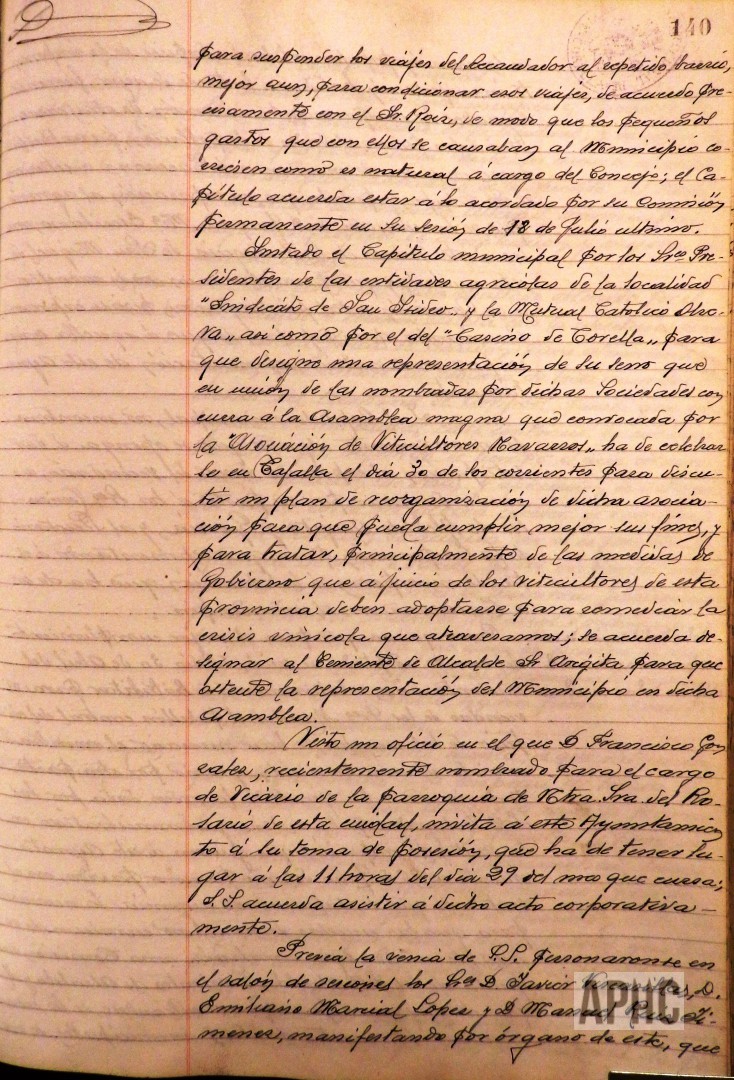 140
para suspender los viajes del Recaudador al repetido barrio,
mejor aun, para condicionar esos viajes, de acuerdo pre-
cisamente con el Sr. Roiz, de modo que los pequeños
gastos que con ellos se causaban al Municipio co-
rriesen como es natural á cargo del Concejo; el Ca-
pítulo acuerda estar á lo acordado por su Comisión
permanente en su sesión de 18 de Julio ultimo.
Instado el Capitulo municipal por los Sres Pre-
sidentes de las entidades agrícolas de la localidad
"Sindicato de San Isidro" y la Mutual Catolico Obre-
ra" asi como por el del "Casino de Corella" para
que designe una representación de su seno que
en unión de las nombradas por dichas Sociedades con
curra á la Asamblea magna que convocada por
la "Asociación de Viticultores Navarros" ha de celebrar
se en Tafalla el dia 30 de los corrientes para discu-
tir un plan de reorganización de dicha asocia-
ción para que pueda cumplir mejor sus fines, y
para tratar, principalmente de las medidas de
Gobierno que á juicio de los viticultores de esta
provincia deben adoptarse para remediar la
crisis vinicola que atravesamos; se acuerda de-
signar al Teniente de Alcalde Sr Argita para que
ostente la representación del Municipio en dicha
Asamblea.
Visto un oficio en el que D Francisco Gon
zalez, recientemente nombrado para el cargo
de Vicario de la parroquia de Ntra. Sra. del Ro-
sario de esta ciudad, invita á este Ayuntamien
to á la toma de posesión, que ha de tener lu-
gar á las 11 horas del dia 29 del mes que cursa;
S. S. acuerda asistir á dicho acto corporativa-
mente.
Previa la venia de S.S. personaronse en
el salón de sesiones los Srs D Javier D.
Emiliano Marcial Lopez y D Manuel Ji-
menez, manifestando por órgano de este, que
APHC